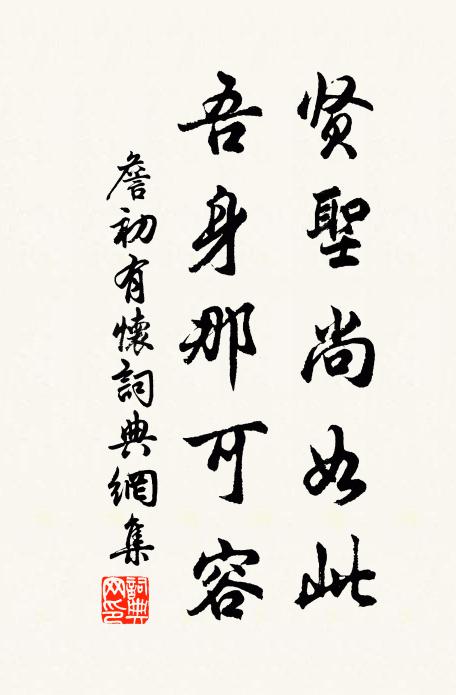 贤聖尚如此
吾身那可容
詹初有懷詞典網集
詞典网印